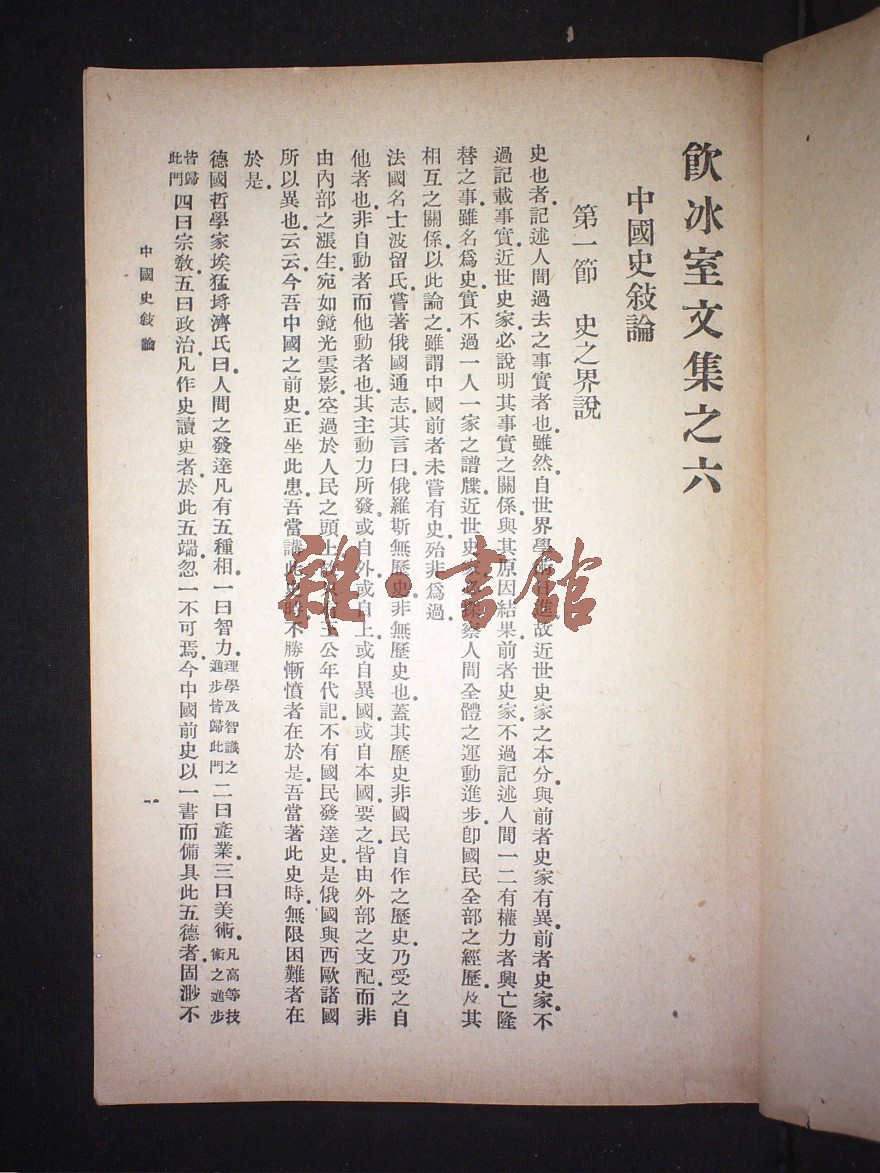 飲冰室文集之六
中國史敍論
第一節　史之界說
史也者。記述人間過去之事實者也。雖然。自世界學術日進。故近世史家之本分。與前者史家有異。前者史家。不
過記載事實。近世史家。必說明其事實之關係。與其原因結果。前者史家。不過記述人間一二有權力者興亡隆
替之事。雖名爲史。實不過一人一家之譜牒。近世史家。必探察人間全體之運動進步。卽國民全部之經歷。及其
相互之關係。以此論之。雖謂中國前者未嘗有史。殆非爲過。
法國名士波留氏。嘗著俄國通志。其言曰。俄羅斯無歷史。非無歷史也。蓋其歷史非國民自作之歷史。乃受之自
他者也。非自動者而他動者也。其主動力所發。或自外。或自上。或自異國。或自本國。要之皆由外部之支配。而非
由內部之漲生。宛如鏡光雲影。空過於人民之頭上。故只有王公年代記。不有國民發達史。是俄國與西歐諸國
所以異也。云云。今吾中國之前史。正坐此患。吾當講此史時。不勝慚憤者在於是。吾當著此史時。無限困難者在
於是。
德國哲學家埃猛埓濟氏曰。人間之發達凡有五種相。一曰智力。理學及智識之進步皆歸此門二曰產業。三曰美術。凡高等技術之進步
皆歸此門四曰宗敎。五曰政治。凡作史讀史者。於此五端。忽一不可焉。今中國前史以一書而備具此五德者。固渺不
中國史敍論
一
雜·書館